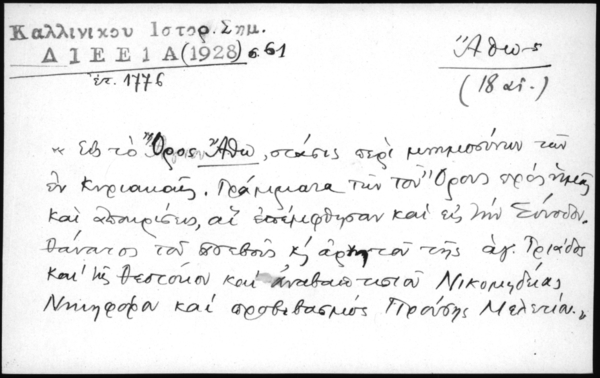 Καλλινίκου Ιστορ. Σημ.
ΔΙΕΕ 1Α (1928) σ. 61
ἔτ. 1776
Ἄθως
(18 αἰ.)
« Εἰς τὸ Ὄρος Ἄθω, στάσις περὶ μνημοσύνων τῶν
ἐν Κυριακαῖς. Γράμματα τῶν τοῦ Ὄρους πρὸς ἡμᾶς
καὶ ἀποκρίσεις, αἳ ἐπέμφθησαν καὶ εἰς τὴν Σύνοδον.
θάνατος τοῦ ἀσεβοῦς κ̀ ἀρνητοῦ τῆς ἁγ. Τριάδος
καὶ τῆς Θεοτόκου καὶ ἀναβαπτιστοῦ Νικομηδείας
Νικηφόρου καὶ προβιβασμός Προύσης Μελετίου. »